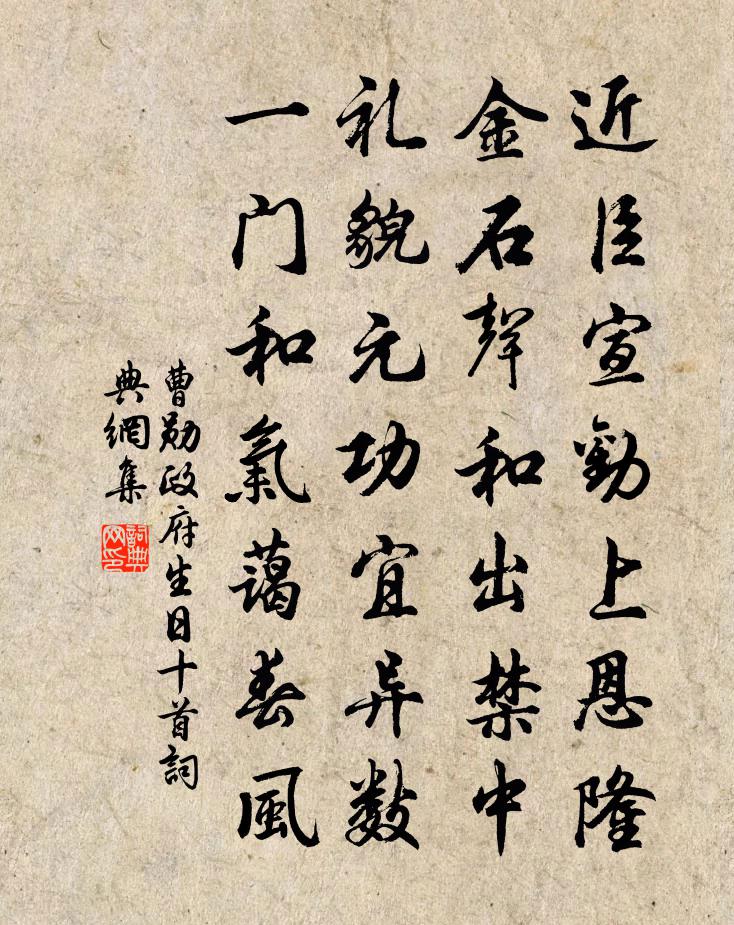 近臣宣勸上恩隆
金石聲和出禁中
礼貌元功宜异數
一门和氣藹春風
曹勛政府生日十首詞
典網集
詞典
网印